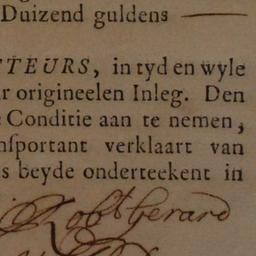 Duizend guldens
TEURS, in tyd en wyle
r origineelen Inleg. Den
Conditie aan te nemen,
nſportant verklaart van
s beyde onderteekent in
Robt Gerard